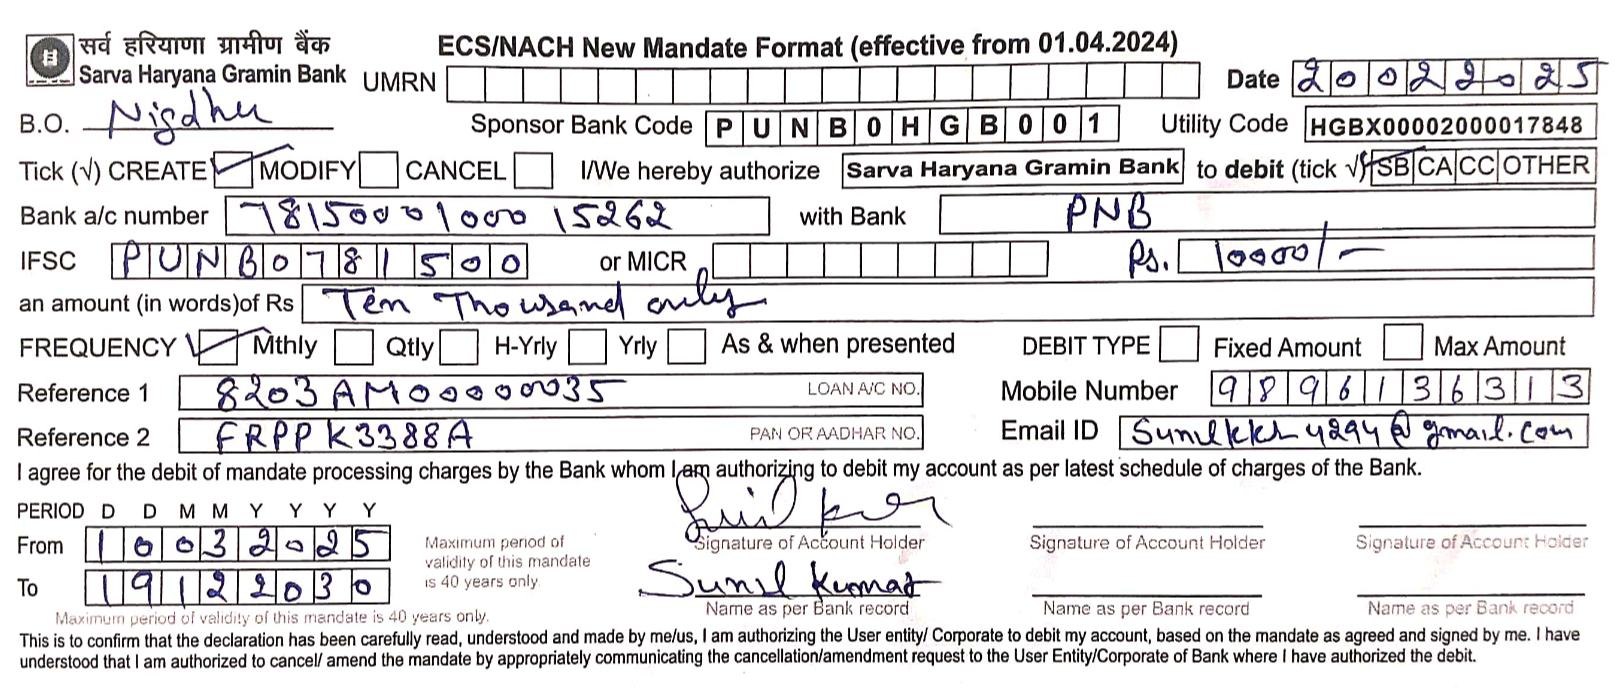 सर्व हरियाणा ग्रामीण बैंक
Sarva Haryana Gramin Bank
ECS/NACH New Mandate Format (effective from 01.04.2024)
UMRN Date 20022025
B.O. Nigdhu Sponsor Bank Code PUNB0HGB001 Utility Code HGBX00002000017848
Tick (√) CREATE MODIFY CANCEL I/We hereby authorize Sarva Haryana Gramin Bank to debit (tick √) SB CA CC OTHER
Bank a/c number 7815000100015262 with Bank PNB
IFSC PUNB0781500 or MICR Rs. 10000/-
an amount (in words)of Rs Ten Thousand only
FREQUENCY Mthly Qtly H-Yrly Yrly As & when presented DEBIT TYPE Fixed Amount Max Amount
Reference 1 8203AM00000035 LOAN A/C NO. Mobile Number 9896136313
Reference 2 FRPPK3388A PAN OR AADHAR NO. Email ID @gmail.com
I agree for the debit of mandate processing charges by the Bank whom I am authorizing to debit my account as per latest schedule of charges of the Bank.
PERIOD D D M M Y Y Y Y
From 10032025
To 19122030
Maximum period of validity of this mandate is 40 years only.
Maximum period of validity of this mandate is 40 years only.
Signature of Account Holder Signature of Account Holder Signature of Account Holder
Sunil Kumar
Name as per Bank record Name as per Bank record Name as per Bank record
This is to confirm that the declaration has been carefully read, understood and made by me/us, I am authorizing the User entity/ Corporate to debit my account, based on the mandate as agreed and signed by me. I have
understood that I am authorized to cancel/ amend the mandate by appropriately communicating the cancellation/amendment request to the User Entity/Corporate of Bank where I have authorized the debit.